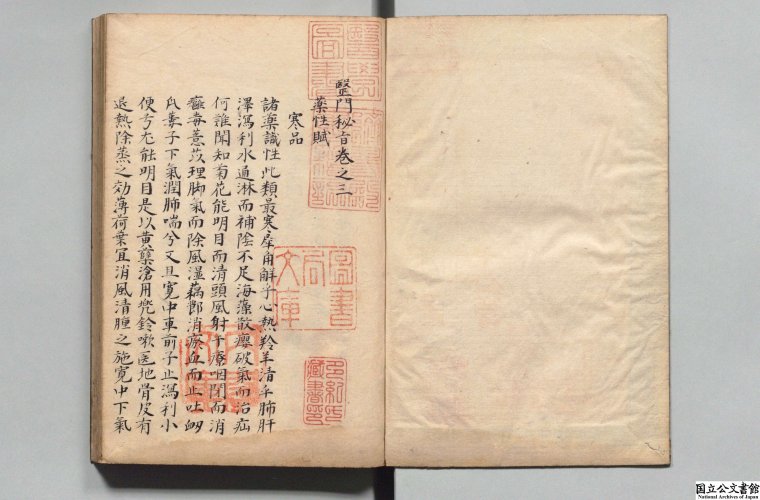 醫門秘旨卷之三
藥性賦
寒品
諸藥識性此類最寒犀角解乎心熱羚羊清乎肺肝
澤瀉利水通淋而補陰不足海藻散癭破氣而治疝
何誰聞知菊花能明目而清頭風射干療咽閉而消
癰毒薏苡理脚氣而除風濕藕節消瘀血而止吐衂
瓜蔞子下氣潤肺喘兮又且寬中車前子止瀉利小
便兮尤能明目是以黃蘗瘡用兜鈴嗽医地骨皮有
退熱除蒸之効薄荷葉宜消風清腫之施寬中下氣
圖書
局
文庫
国立公文書館
National Archives of Japan